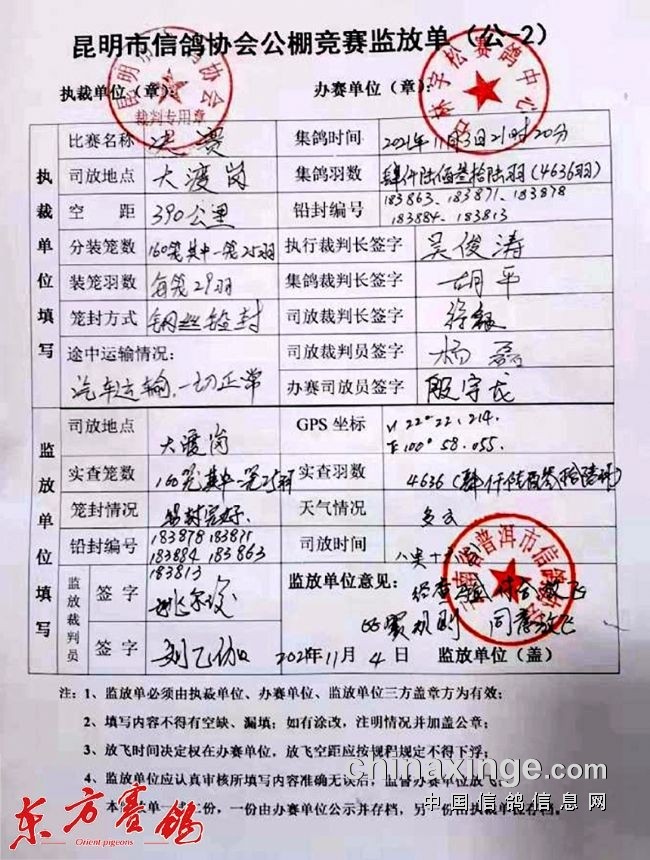 昆明市信鸽协会公棚竞赛监放单（公-2）
执裁单位（章）： 办赛单位（章）：
裁判专用章
林宇松赛鸽中心
执裁单位填写
比赛名称 决赛 集鸽时间 2021年11月3日21时20分
司放地点 大渡岗 集鸽羽数 肆仟陆佰叁拾陆羽（4636羽）
空距 390公里 铅封编号 183863、183871、183878
183884、183813
分装笼数 160笼其中一笼25羽 执行裁判长签字 吴俊涛
装笼羽数 每笼29羽 集鸽裁判长签字 胡平
笼封方式 钢丝铅封 司放裁判长签字
途中运输情况： 司放裁判员签字 杨磊
汽车运输，一切正常 办赛司放员签字 殷宇龙
监放单位填写
司放地点 大渡岗 GPS 坐标 N 22°22.214.
E 100°58.055.
实查笼数 160笼其中一笼25羽 实查羽数 4636（肆仟陆佰叁拾陆羽）
笼封情况 铅封完好. 天气情况 多云
铅封编号 183878 183871 司放时间
183884 183863
183813
监放裁判员 签字 监放单位意见：
同意放飞
签字
2021年11月4日 监放单位（盖）
云南省普洱市信鸽协会
注：1、监放单必须由执裁单位、办赛单位、监放单位三方盖章方为有效；
2、填写内容不得有空缺、漏填；如有涂改，注明情况并加盖公章；
3、放飞时间决定权在办赛单位，放飞空距应按规程规定不得下浮；
4、监放单位应认真审核所填写内容准确无误后，监督办赛单位放飞；
5、本监放单一式二份，一份由办赛单位公示并存档，另一份由执裁单位存档。
chinaxinge.com
中国信鸽信息网
东方赛鸽
Orient pigeons